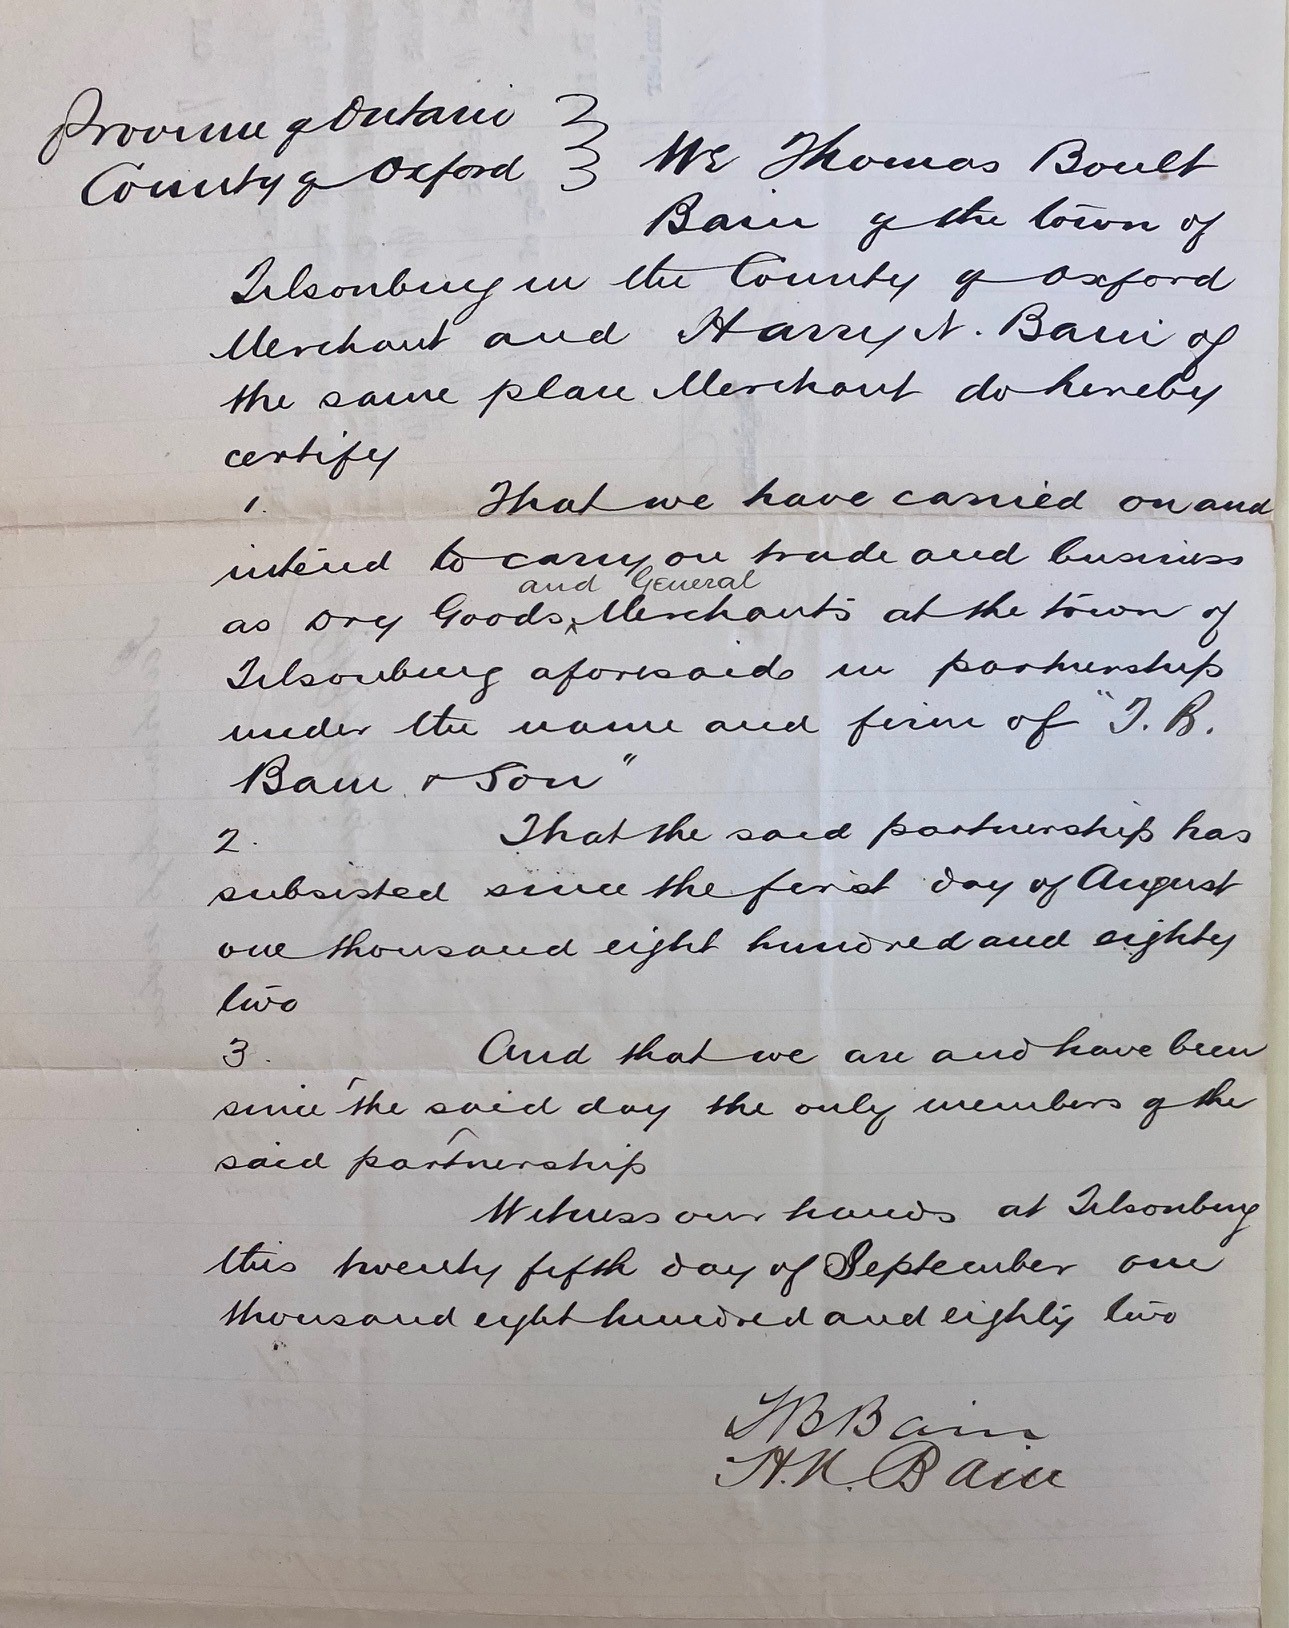 Province of Ontario
County of Oxford
We Thomas Boult
Bain of the town of
Tilsonburg in the County of Oxford
Merchant and Harry N. Bain of
the same place Merchant do hereby
certify
1. That we have carried on and
intend to carry on trade and business
and General
as Dry Goods Merchants at the town of
Tilsonburg aforesaid in partnership
under the name and firm of "T. B.
Bain & Son"
2. That the said partnership has
subsisted since the first day of August
one thousand eight hundred and eighty
two
3. And that we are and have been
since the said day the only members of the
said partnership
Witness our hands at Tilsonburg
this twenty fifth day of September one
thousand eight hundred and eighty two
T B Bain
H. N. Bain